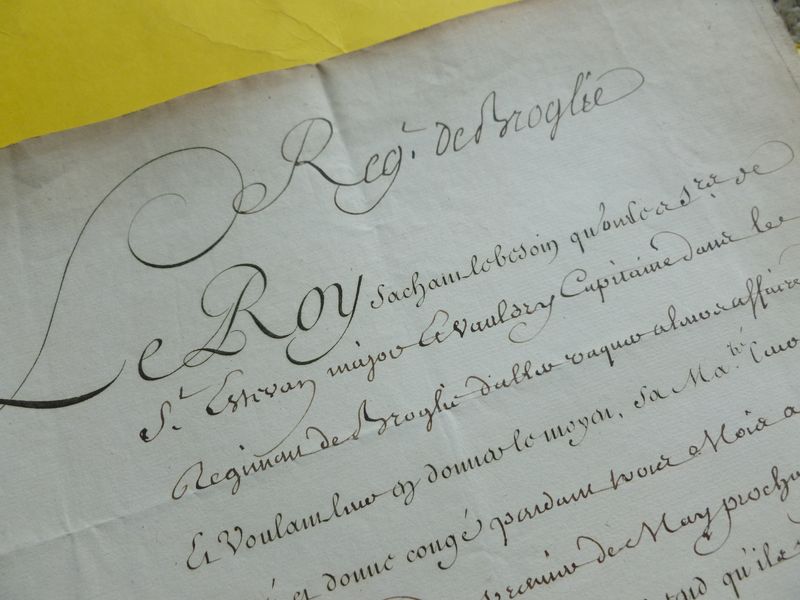 Reg.^t de Broglie
Le Roy sachant le besoin qu'ont les S.rs de
S.t Estevan major Et Vauldry Capitaine dans le
Regiment de Broglie d'aller vaquer a leurs affaires
Et Voulant leur en donner le moyen, Sa Ma.té leur
et donne congé pendant trois Mois a
de May procha
qu'ils